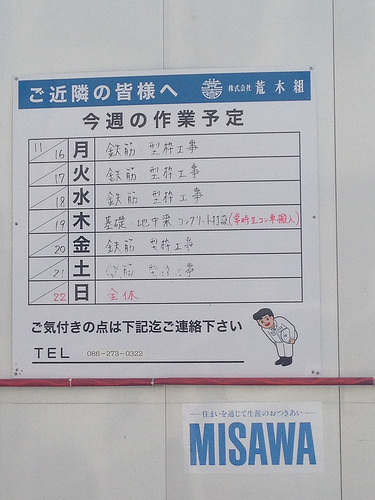 ご近隣の皆様へ 株式会社 荒木組
今週の作業予定
11/16 月 鉄筋・型枠工事
17 火 鉄筋 型枠工事
18 水 鉄筋 型枠工事
19 木 基礎・地中梁コンクリート打設(常時生コン車搬入)
20 金 鉄筋 型枠工事
21 土 鉄筋 型枠工事
22 日 全休
ご気付きの点は下記迄ご連絡下さい
TEL 086-273-0322
住まいを通じて生涯のおつきあい
MISAWA